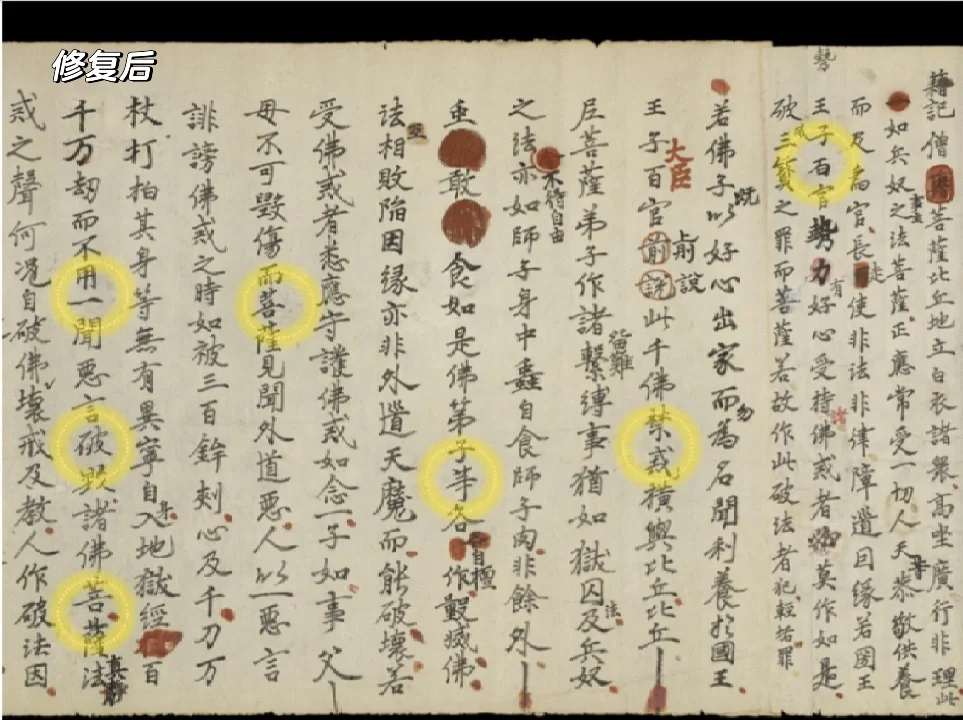 修复后
藉記僧菩薩比丘地立白衣諸眾高坐廣行非理此
如兵奴之法菩薩正應常受一切人天恭敬供養
而反為官長走使非法非律障道因緣若國王
王子百官勢力好心受持佛戒者莫作如是
破三寶之罪而菩薩若故作此破法者犯輕垢罪
勢
有
若佛子以好心出家而為名聞利養於國王
王子百官前說此千佛禁戒橫興比丘比丘
大臣
前說
尼菩薩弟子作諸繫縛事猶如獄囚及兵奴
留難
法
之法亦如師子身中蟲自食師子肉非餘外
不待自由
重敢食如是佛第子等各作毀滅佛
自檀
法相敗陷因緣亦非外道天魔而能破壞若
受佛戒者悉應守護佛戒如念一子如事父
母不可毀傷而菩薩見聞外道惡人以一惡言
誹謗佛戒之時如被三百鉾刺心及千刀万
杖打拍其身等無有異寧自入地獄經百
千万劫而不用一聞惡言破毀諸佛菩薩法
戒之聲何況自破佛壞戒及教人作破法因